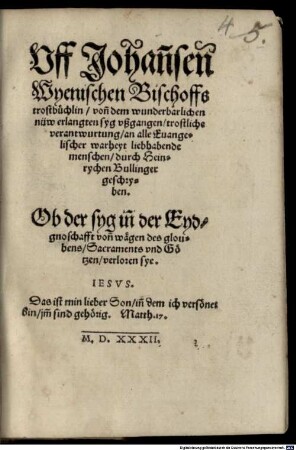 4 5.
Vff Johañsen
Wyenischen Bischoffs
trostbüchlin / von dem wunderbarlichen
nüw erlangten syg vßgangen / trostliche
verantwurtung / an alle Euange-
lischer warheyt liebhabende
menschen / durch Hein-
rychen Bullinger
geschry-
ben.
Ob der syg iñ der Eyd-
gnoschafft von wägen des glou-
bens / Sacraments vnd Gö
tzen / verloren sye.
IESVS.
Das ist min lieber Son / iñ dem ich versönet
bin / jm̃ sind gehörig. Matth. 17.
M. D. XXXII.